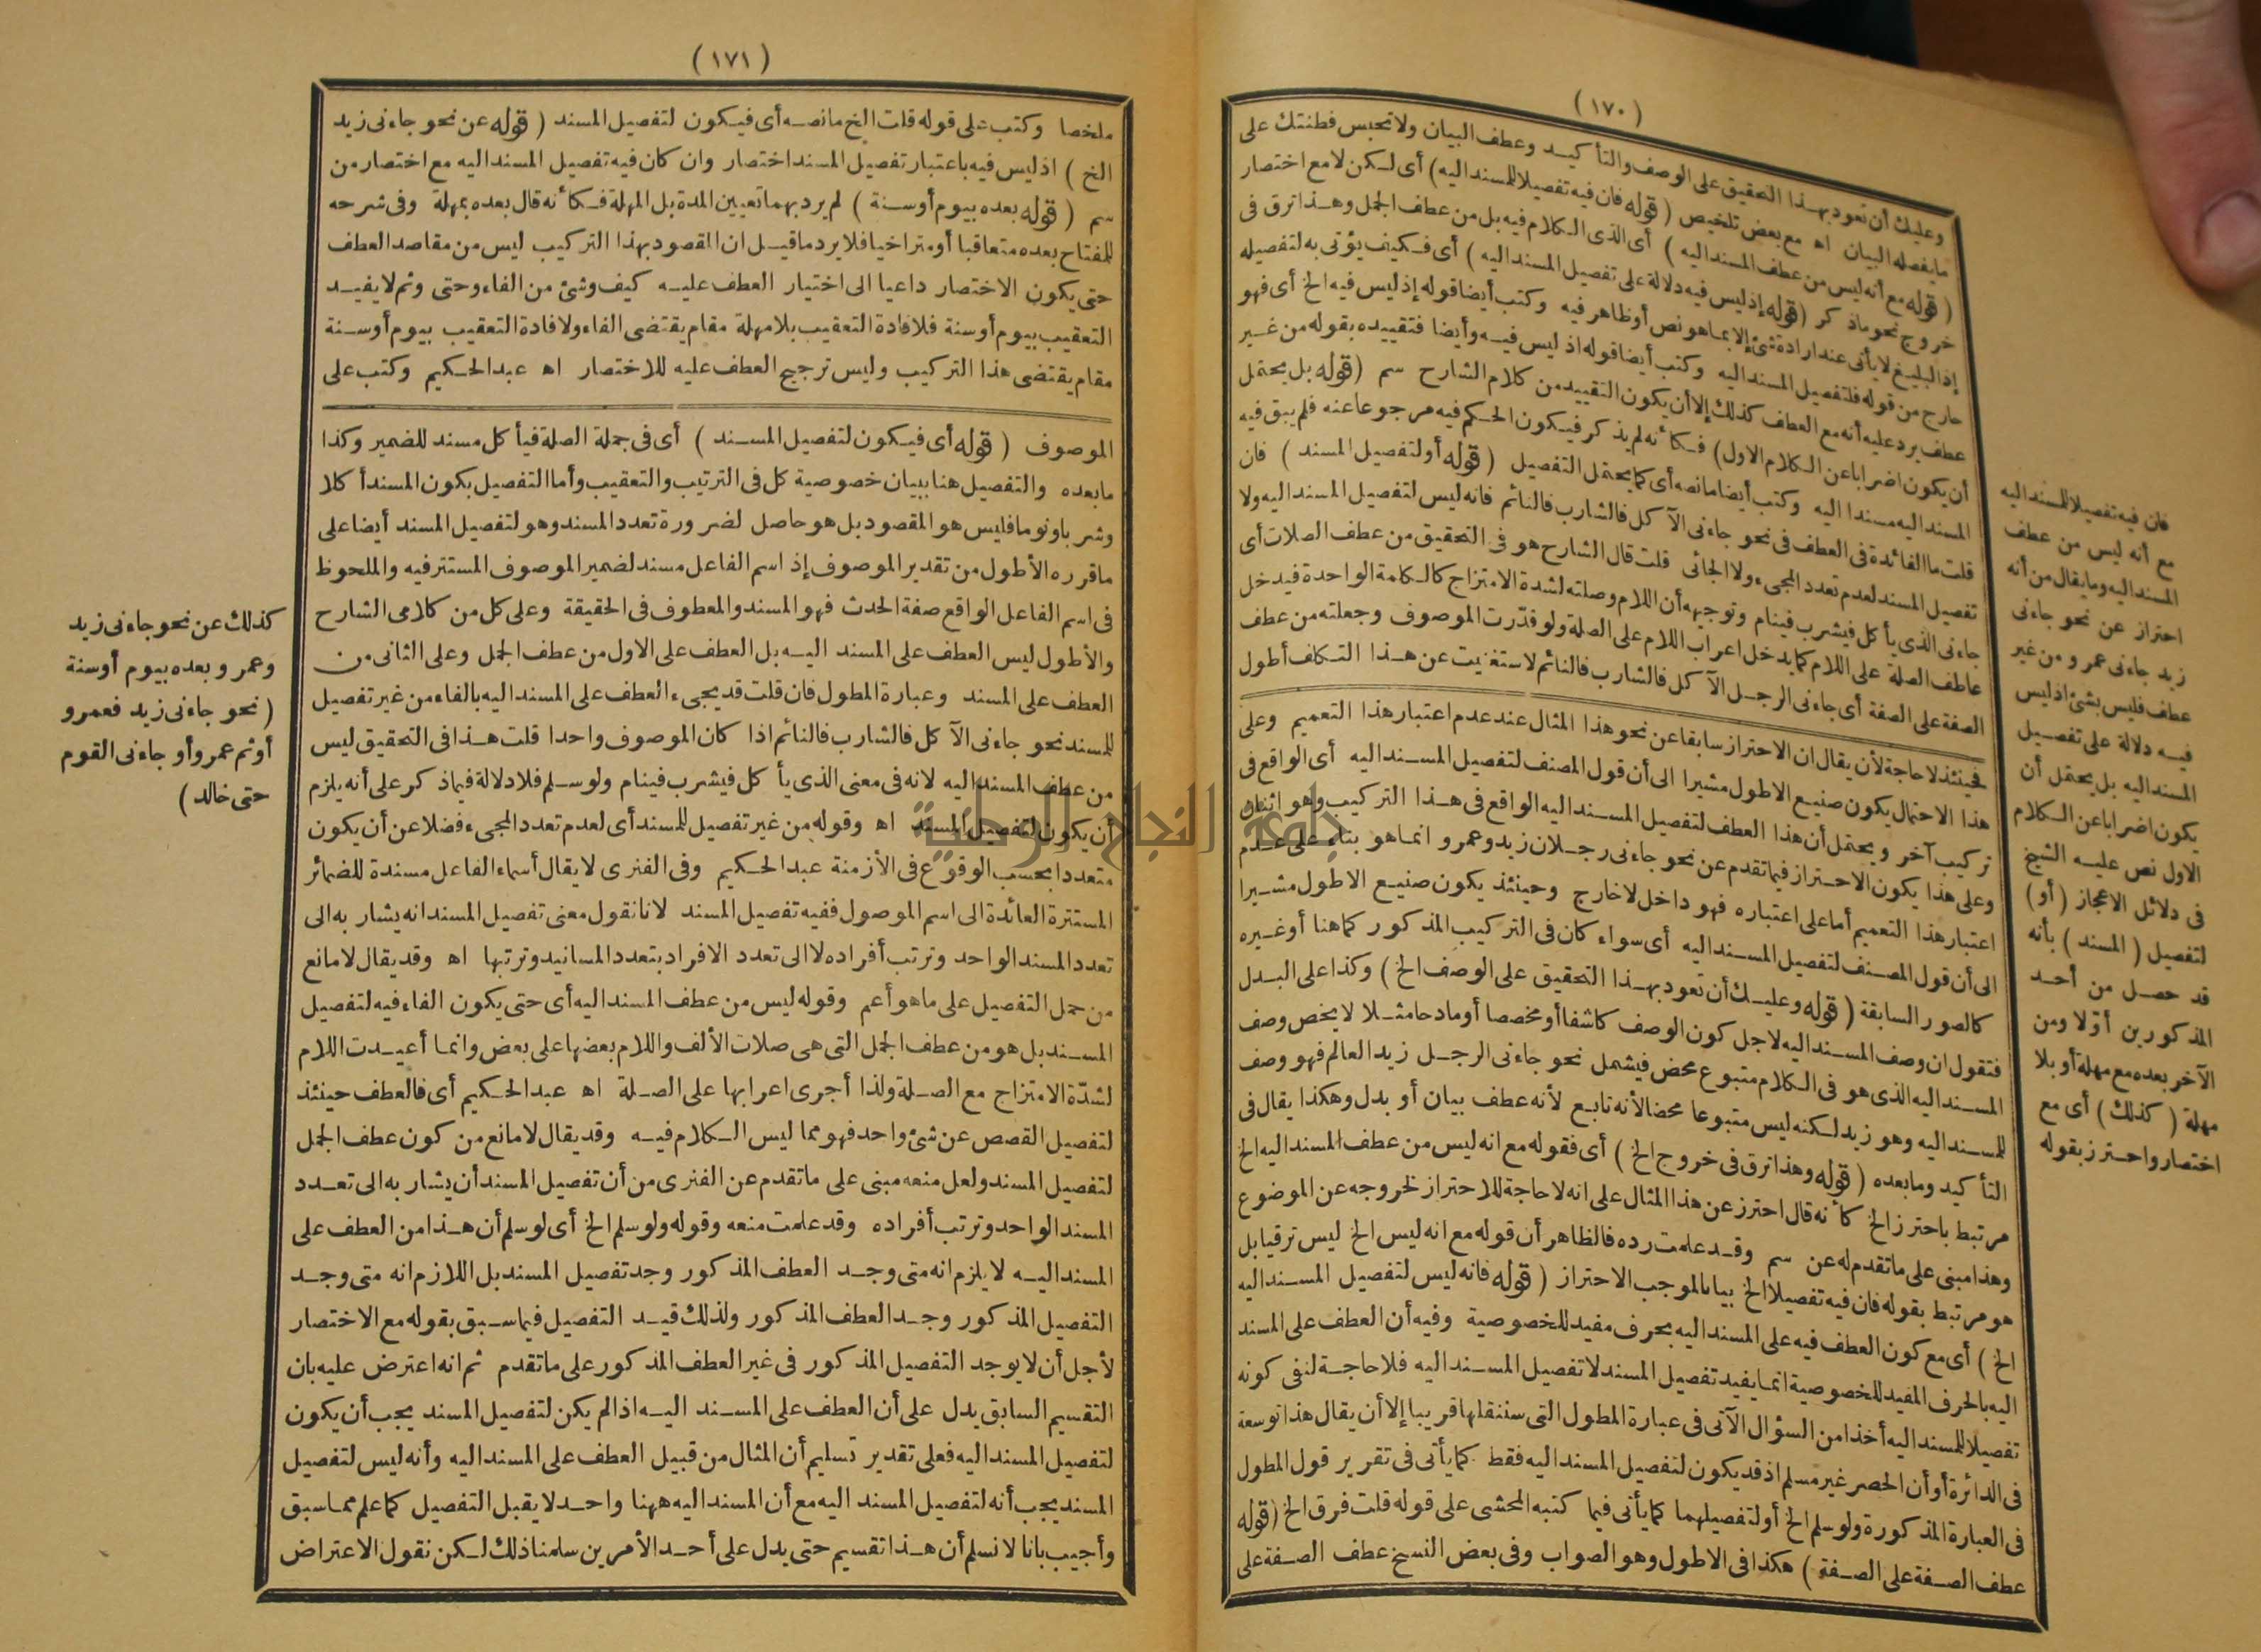 (١٧٠)
وعليك أن تعود بهذا التحقيق على الوصف والتأكيد وعطف البيان ولا تحبس فطنتك على
ما يفصله البيان اه مع بعض تلخيص (قوله فان فيه تفصيلا للمسند اليه) أى لكن لا مع اختصار
(قوله مع أنه ليس من عطف المسند اليه) أى الذى الكلام فيه بل من عطف الجمل وهذا ترق فى
خروج نحو ماذكر (قوله إذ ليس فيه دلالة على تفصيل المسند اليه) أى فكيف يؤتى به لتفصيله
إذ البليغ لا يأتى عند ارادة شئ إلا بما هو نص أو ظاهر فيه وكتب أيضا قوله إذ ليس فيه الخ أى فهو
خارج من قوله فلتفصيل المسند اليه وكتب أيضا قوله اذ ليس فيه وأيضا فتقييده بقوله من غير
عطف يرد عليه أنه مع العطف كذلك إلا أن يكون التقييد من كلام الشارح سم (قوله بل يحتمل
أن يكون اضرابا عن الكلام الاول) فكأنه لم يذكر فيكون الحكم فيه مرجوعا عنه فلم يبق فيه
المسند اليه مسندا اليه وكتب أيضا مانصه أى كما يحتمل التفصيل (قوله أو لتفصيل المسند) فان
قلت ما الفائدة فى العطف فى نحو جاءنى الآكل فالشارب فالنائم فانه ليس لتفصيل المسند اليه ولا
تفصيل المسند لعدم تعدد المجىء ولا الجائى قلت قال الشارح هو فى التحقيق من عطف الصلات أى
جاءنى الذى يأكل فيشرب فينام وتوجيهه أن اللام وصلته لشدة الامتزاج كالكلمة الواحدة فيدخل
عاطف الصلة على اللام كما يدخل اعراب اللام على الصلة ولو قدّرت الموصوف وجعلته من عطف
الصفة على الصفة أى جاءنى الرجل الآكل فالشارب فالنائم لاستغنيت عن هذا التكلف أطول
فحينئذ لا حاجة لأن يقال ان الاحتراز سابقا عن نحو هذا المثال عند عدم اعتبار هذا التعميم وعلى
هذا الاحتمال يكون صنيع الاطول مشيرا الى أن قول المصنف لتفصيل المسند اليه أى الواقع فى
تركيب آخر ويحتمل أن هذا العطف لتفصيل المسند اليه الواقع فى هذا التركيب وهو اثنان
وعلى هذا يكون الاحتراز فيما تقدم عن نحو جاءنى رجلان زيد وعمرو انما هو بناء على عدم
اعتبار هذا التعميم أما على اعتباره فهو داخل لا خارج وحينئذ يكون صنيع الاطول مشيرا
الى أن قول المصنف لتفصيل المسند اليه أى سواء كان فى التركيب المذكور كما هنا أو غيره
كالصور السابقة (قوله وعليك أن تعود بهذا التحقيق على الوصف الخ) وكذا على البدل
فتقول ان وصف المسند اليه لاجل كون الوصف كاشفا أو مخصصا أو مادحا مثلا لا يخص وصف
المسند اليه الذى هو فى الكلام متبوع محض فيشمل نحو جاءنى الرجل زيد العالم فهو وصف
للمسند اليه وهو زيد لكنه ليس متبوعا محضا لأنه تابع لأنه عطف بيان أو بدل وهكذا يقال فى
التأكيد وما بعده (قوله وهذا ترق فى خروج الخ) أى فقوله مع انه ليس من عطف المسند اليه الخ
مرتبط باحترز الخ كأنه قال احترز عن هذا المثال على انه لا حاجة للاحتراز لخروجه عن الموضوع
وهذا مبنى على ما تقدم له عن سم وقد علمت رده فالظاهر أن قوله مع انه ليس الخ ليس ترقيا بل
هو مرتبط بقوله فان فيه تفصيلا الخ بيانا لموجب الاحتراز (قوله فانه ليس لتفصيل المسند اليه
الخ) أى مع كون العطف فيه على المسند اليه بحرف مفيد للخصوصية وفيه أن العطف على المسند
اليه بالحرف المفيد للخصوصية انما يفيد تفصيل المسند لا تفصيل المسند اليه فلا حاجة لنفى كونه
تفصيلا للمسند اليه أخذا من السؤال الآتى فى عبارة المطول التى سننقلها قريبا إلا أن يقال هذا توسعة
فى الدائرة أو أن الحصر غير مسلم اذ قد يكون لتفصيل المسند اليه فقط كما يأتى فى تقرير قول المطول
فى العبارة المذكورة ولو سلم الخ أو لتفصيلهما كما يأتى فيما كتبه المحشى على قوله قلت فرق الخ (قوله
عطف الصفة على الصفة) هكذا فى الاطول وهو الصواب وفى بعض النسخ عطف الصفة على
فان فيه تفصيلا للمسند اليه
مع أنه ليس من عطف
المسند اليه وما يقال من أنه
احتراز عن نحو جاءنى
زيد جاءنى عمرو من غير
عطف فليس بشئ اذ ليس
فيه دلالة على تفصيل
المسند اليه بل يحتمل أن
يكون اضرابا عن الكلام
الاول نص عليه الشيخ
فى دلائل الاعجاز (أو)
لتفصيل (المسند) بأنه
قد حصل من أحد
المذكورين أوّلا ومن
الآخر بعده مع مهلة أو بلا
مهلة (كذلك) أى مع
اختصار واحترز بقوله
(١٧١)
ملخصا وكتب على قوله قلت الخ مانصه أى فيكون لتفصيل المسند (قوله عن نحو جاءنى زيد
الخ) اذ ليس فيه باعتبار تفصيل المسند اختصار وان كان فيه تفصيل المسند اليه مع اختصار من
سم (قوله بعده بيوم أو سنة) لم يرد بهما تعيين المدة بل المهلة فكأنه قال بعده بمهلة وفى شرحه
للمفتاح بعده متعاقبا أو متراخيا فلا يرد ما قيل ان المقصود بهذا التركيب ليس من مقاصد العطف
حتى يكون الاختصار داعيا الى اختيار العطف عليه كيف وشئ من الفاء وحتى وثم لا يفيد
التعقيب بيوم أو سنة فلافادة التعقيب بلا مهلة مقام يقتضى الفاء ولافادة التعقيب بيوم أو سنة
مقام يقتضى هذا التركيب وليس ترجيح العطف عليه للاختصار اه عبد الحكيم وكتب على
الموصوف (قوله أى فيكون لتفصيل المسند) أى فى جملة الصلة فيأكل مسند للضمير وكذا
ما بعده والتفصيل هنا ببيان خصوصية كل فى الترتيب والتعقيب وأما التفصيل بكون المسند أكلا
وشربا ونوما فليس هو المقصود بل هو حاصل لضرورة تعدد المسند وهو لتفصيل المسند أيضا على
ما قرره الأطول من تقدير الموصوف إذ اسم الفاعل مسند لضمير الموصوف المستتر فيه والملحوظ
فى اسم الفاعل الواقع صفة الحدث فهو المسند والمعطوف فى الحقيقة وعلى كل من كلامى الشارح
والأطول ليس العطف على المسند اليه بل العطف على الاول من عطف الجمل وعلى الثانى من
العطف على المسند وعبارة المطول فان قلت قد يجىء العطف على المسند اليه بالفاء من غير تفصيل
للمسند نحو جاءنى الآكل فالشارب فالنائم اذا كان الموصوف واحدا قلت هذا فى التحقيق ليس
من عطف المسند اليه لانه فى معنى الذى يأكل فيشرب فينام ولو سلم فلا دلالة فيما ذكر على أنه يلزم
أن يكون لتفصيل المسند اه وقوله من غير تفصيل للمسند أى لعدم تعدد المجىء فضلا عن أن يكون
متعددا بحسب الوقوع فى الأزمنة عبد الحكيم وفى الفنرى لا يقال أسماء الفاعل مسندة للضمائر
المستترة العائدة الى اسم الموصول ففيه تفصيل المسند لانا نقول معنى تفصيل المسند انه يشار به الى
تعدد المسند الواحد وترتب أفراده لا الى تعدد الافراد بتعدد المسانيد وترتبها اه وقد يقال لا مانع
من حمل التفصيل على ما هو أعم وقوله ليس من عطف المسند اليه أى حتى يكون الفاء فيه لتفصيل
المسند بل هو من عطف الجمل التى هى صلات الألف واللام بعضها على بعض وانما أعيدت اللام
لشدّة الامتزاج مع الصلة ولذا أجرى اعرابها على الصلة اه عبد الحكيم أى فالعطف حينئذ
لتفصيل القصص عن شئ واحد فهو مما ليس الكلام فيه وقد يقال لا مانع من كون عطف الجمل
لتفصيل المسند ولعل منعه مبنى على ما تقدم عن الفنرى من أن تفصيل المسند أن يشار به الى تعدد
المسند الواحد وترتب أفراده وقد علمت منعه وقوله ولو سلم الخ أى لو سلم أن هذا من العطف على
المسند اليه لا يلزم انه متى وجد العطف المذكور وجد تفصيل المسند بل اللازم انه متى وجد
التفصيل المذكور وجد العطف المذكور ولذلك قيد التفصيل فيما سبق بقوله مع الاختصار
لأجل أن لا يوجد التفصيل المذكور فى غير العطف المذكور على ما تقدم ثم انه اعترض عليه بان
التقسيم السابق يدل على أن العطف على المسند اليه اذا لم يكن لتفصيل المسند يجب أن يكون
لتفصيل المسند اليه فعلى تقدير تسليم أن المثال من قبيل العطف على المسند اليه وأنه ليس لتفصيل
المسند يجب أنه لتفصيل المسند اليه مع أن المسند اليه ههنا واحد لا يقبل التفصيل كما علم مما سبق
وأجيب بانا لا نسلم أن هذا تقسيم حتى يدل على أحد الأمرين سلمنا ذلك لكن نقول الاعتراض
كذلك عن نحو جاءنى زيد
وعمرو بعده بيوم أو سنة
(نحو جاءنى زيد فعمرو
أو ثم عمرو أو جاءنى القوم
حتى خالد)
جامعة النجاح الوطنية